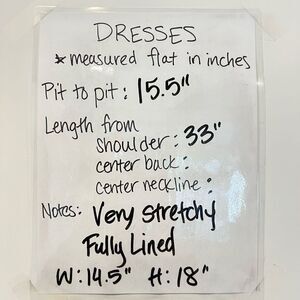 DRESSES
* measured flat in inches
Pit to pit: 15.5"
Length from
shoulder: 33"
center back:
center neckline:
Notes: Very stretchy
Fully Lined
W: 14.5" H: 18"